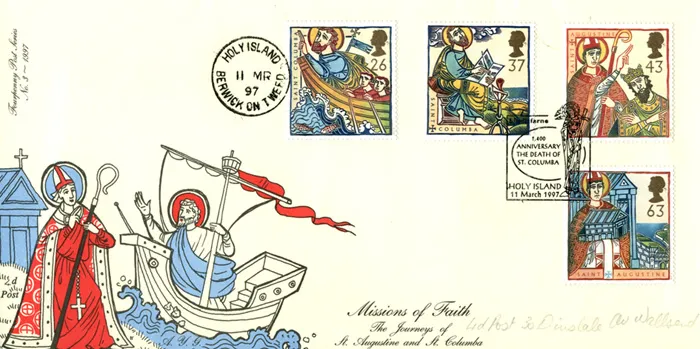 Fourpenny Post Series
No. 3 — 1997
HOLY ISLAND
11 MR
97
BERWICK ON TWEED
SAINT COLUMBA
26
SAINT
COLUMBA
37
SAINT
43
Lindisfarne
1,400
ANNIVERSARY
THE DEATH OF
ST. COLUMBA
HOLY ISLAND
11 March 1997
SAINT AUGUSTINE
63
4d
Post
Missions of Faith
The Journeys of
St. Augustine and St. Columba
4d Post 30 Dinsdale Av Wallsend